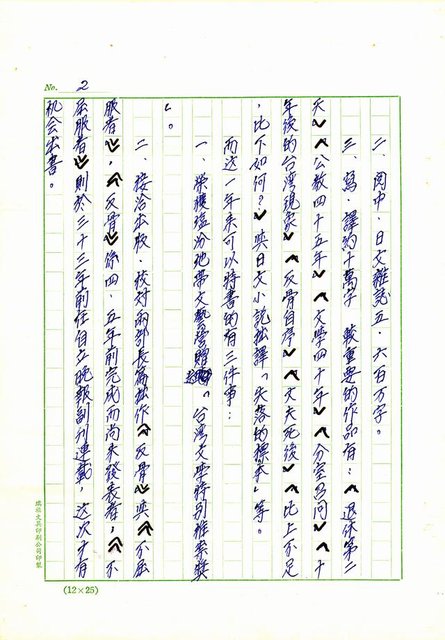 No. 2
二、閱中、日文雜誌五、六百万字。
三、寫、譯約十萬字，較重要的作品有：︽退休第二
天︾︽公教四十五年︾︽文學四十年︾︽分室名問︾︽十
年後的台湾現象︾︽反骨自序︾︽丈夫死後︾︽比上不足
，比下如何？︾與日文小說拙譯「失落的標本」等。
而这一年来可以特書的有三件事：
一、榮獲塩分地帶文藝營贈「台湾文學特别推崇獎
」。
二、接洽出版、校对兩部長篇拙作︽反骨︾與︽不屈
服者︾，︽反骨︾係四、五年前完成而尚未發表者，︽不
屈服者︾則於三十三年前在自立晚報副刊連載，这次才有
机会出書。
(12×25)
文具印刷公司印製